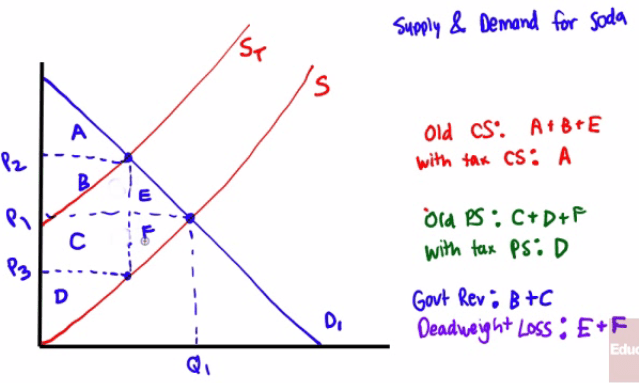 Supply & Demand for Soda
S_T
S
A
P2
B
E
P1
C
F
P3
D
D1
Q1
Old CS: A+B+E
with tax CS: A
Old PS: C+D+F
with tax PS: D
Govt Rev: B+C
Deadweight Loss: E+F
Educ